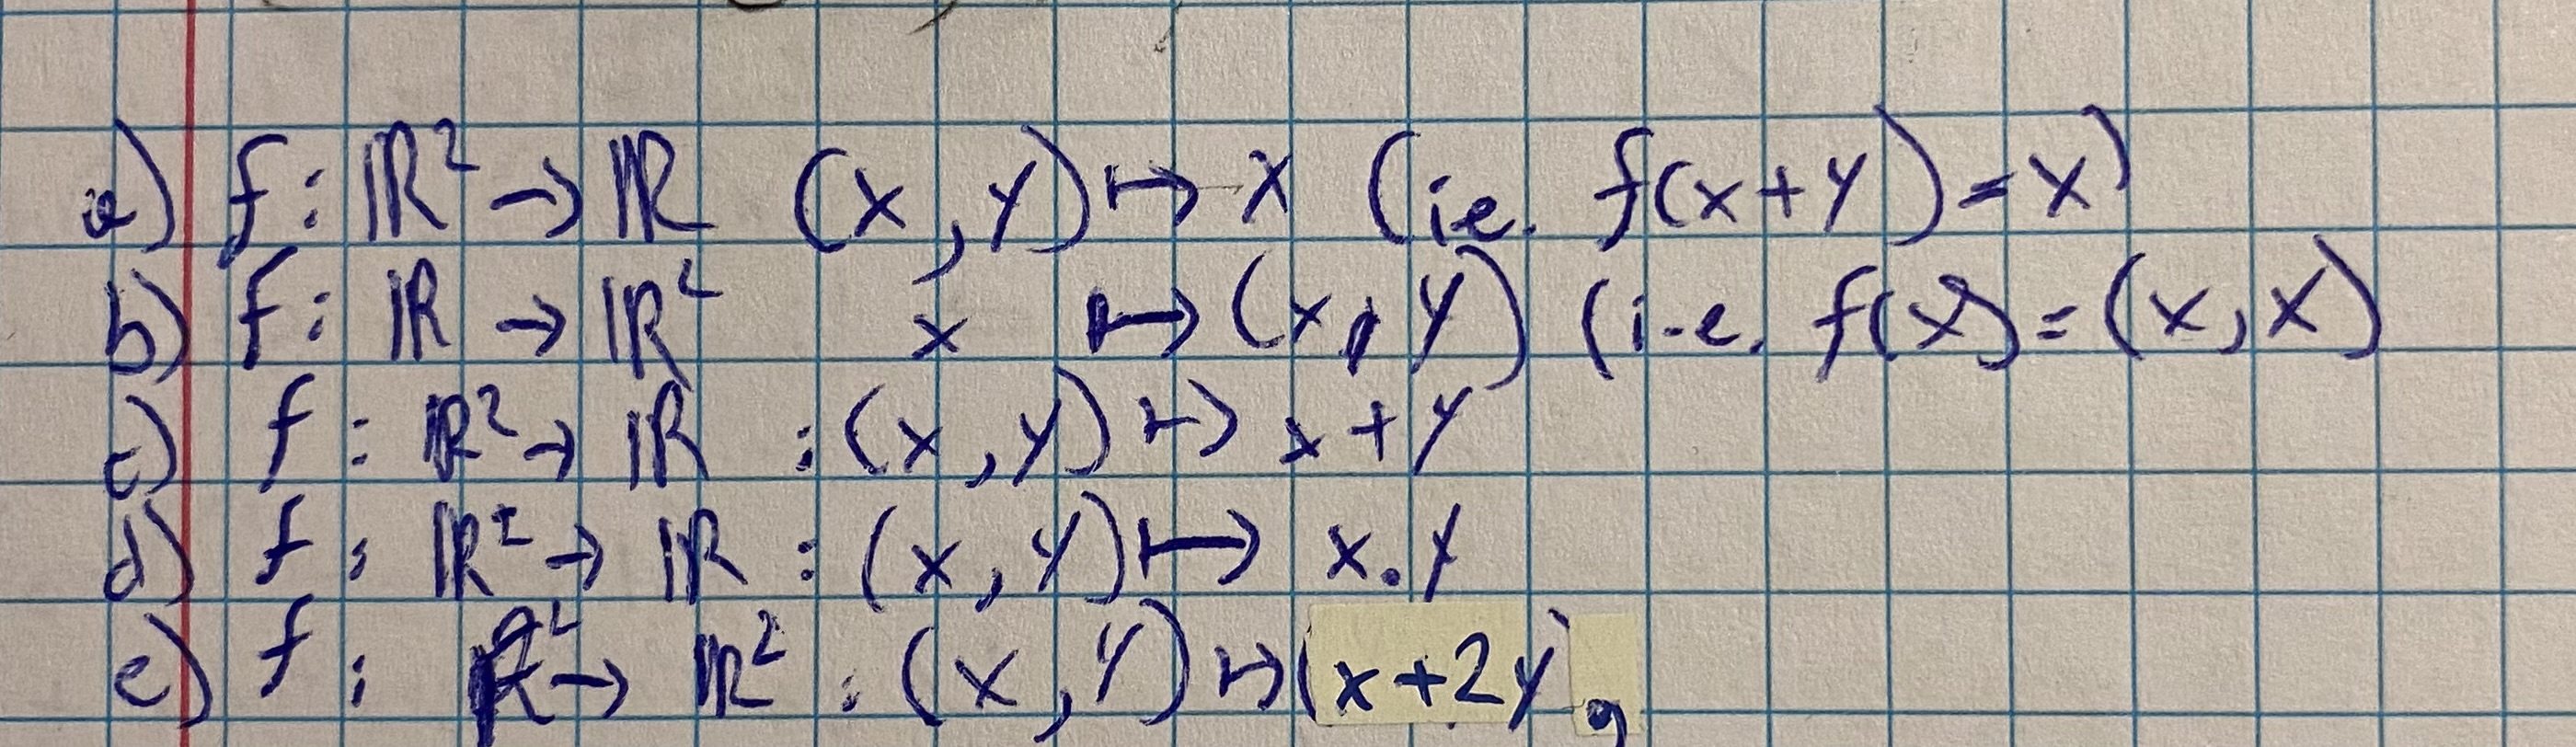 a) f: ℝ² → ℝ (x, y) ↦ x (ie. f(x+y) = x)
b) f: ℝ → ℝ² x ↦ (x, y) (i.e. f(x) = (x, x)
c) f: ℝ² → ℝ : (x, y) ↦ x + y
d) f: ℝ² → ℝ : (x, y) ↦ x . y
e) f: ℝ² → ℝ² : (x, y) ↦ (x + 2y,